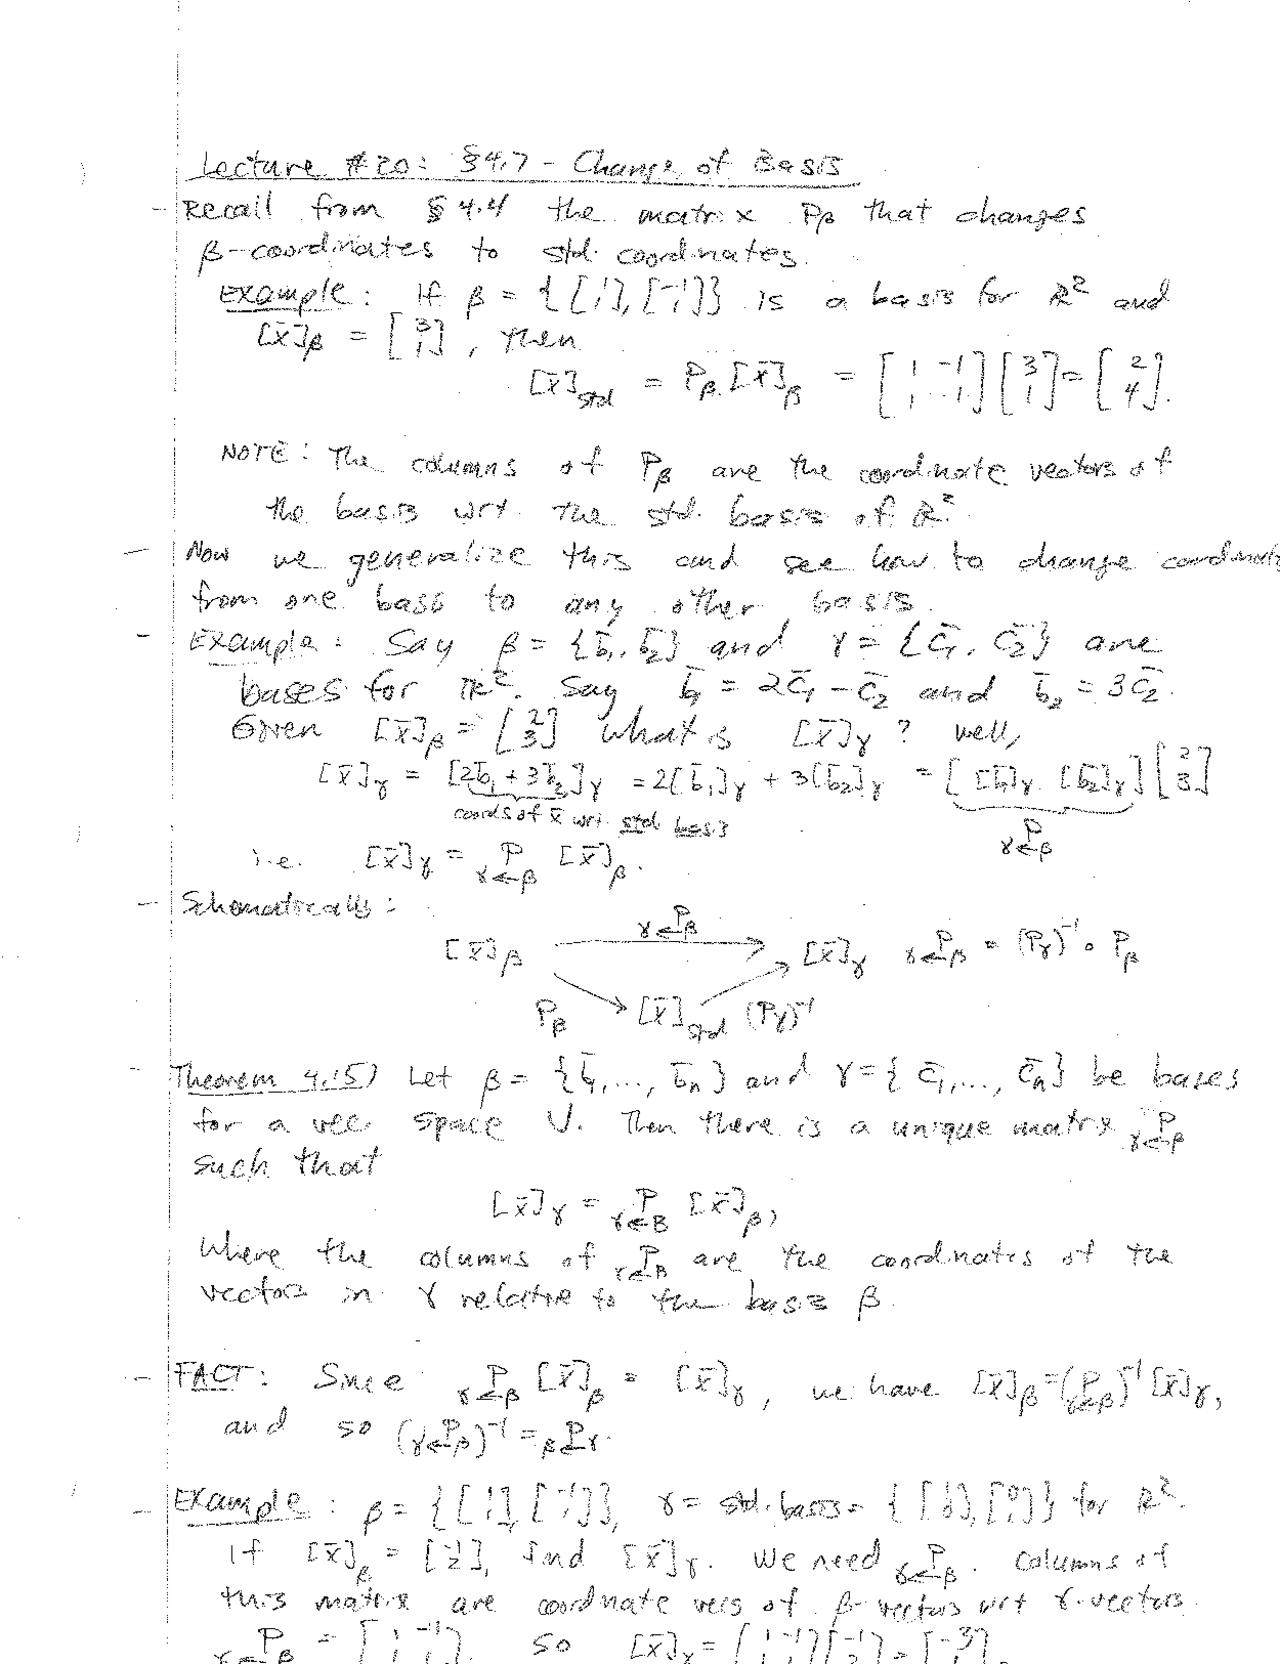 Lecture #20: §4.7 - Change of Basis
- Recall from §4.4 the matrix Pβ that changes
β-coordinates to std. coordinates.
Example: If β = {[1 1], [-1 1]} is a basis for R² and
[x̄]β = [3 1], then
[x̄]std = Pβ [x̄]β = [1 -1; 1 1][3 1] = [2 4].
NOTE: The columns of Pβ are the coordinate vectors of
the basis wrt. the std. basis of R².
- Now we generalize this and see how to change coordinates
from one basis to any other basis.
- Example: Say β = {b̄₁, b̄₂} and γ = {c̄₁, c̄₂} are
bases for R². Say b̄₁ = 2c̄₁ - c̄₂ and b̄₂ = 3c̄₂.
Given [x̄]β = [2 3] what is [x̄]γ? Well,
[x̄]γ = [2b̄₁ + 3b̄₂]γ = 2[b̄₁]γ + 3[b̄₂]γ = [[b̄₁]γ [b̄₂]γ][2 3]
coords of x̄ wrt std basis
P γ←β
i.e. [x̄]γ = P γ←β [x̄]β.
- Schematically:
P γ←β
[x̄]β → [x̄]γ P γ←β = (Pγ)⁻¹ ∘ Pβ
Pβ → [x̄]std (Pγ)⁻¹
- Theorem 4.15) Let β = {b̄₁,..., b̄n} and γ = {c̄₁,..., c̄n} be bases
for a vec. space V. Then there is a unique matrix P γ←β
such that
[x̄]γ = P γ←B [x̄]β,
Where the columns of P γ←B are the coordinates of the
vectors in γ relative to the basis β.
- FACT: Since P γ←β [x̄]β = [x̄]γ, we have [x̄]β = (P γ←β)⁻¹ [x̄]γ,
and so (P γ←β)⁻¹ = P β←γ.
- Example: β = {[1 1], [-1 1]}, γ = std. basis = {[1 0], [0 1]} for R².
If [x̄]β = [-1 2], find [x̄]γ. We need P γ←β. Columns of
this matrix are coordinate vecs of β-vectors wrt γ-vectors.
P γ←β = [1 -1; 1 1]. So [x̄]γ = [1 -1; 1 1][-1 2] = [-3 1].